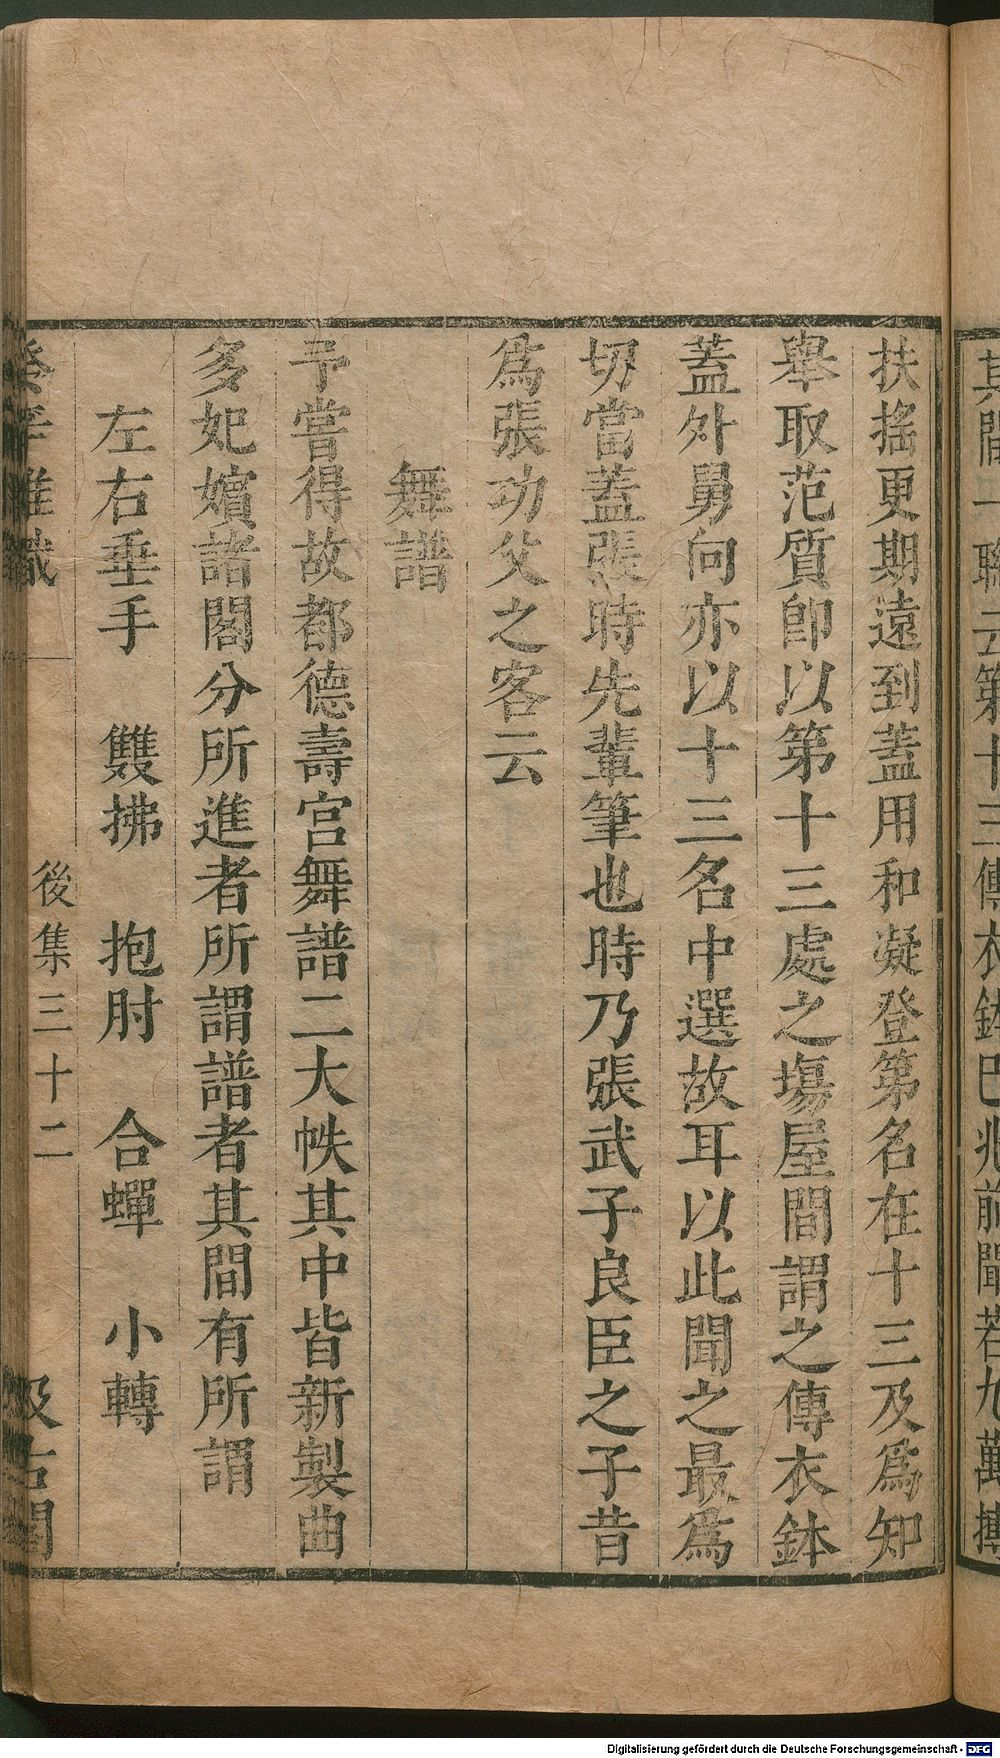 其間一聯云第十三傳衣鉢已兆前聞若九萬摶
扶搖更期遠到蓋用和凝登第名在十三及爲知
舉取范質卽以第十三處之塲屋間謂之傳衣鉢
蓋外舅向亦以十三名中選故耳以此聞之最爲
切當蓋張時先輩筆也時乃張武子良臣之子昔
爲張功父之客云
舞譜
予嘗得故都德壽宮舞譜二大帙其中皆新製曲
多妃嬪諸閣分所進者所謂譜者其間有所謂
左右垂手 雙拂 抱肘 合蟬 小轉
癸辛雜識 後集三十二 汲古閣
Digitalisierung gefördert durch die Deutsche Forschungsgemeinschaft - DFG